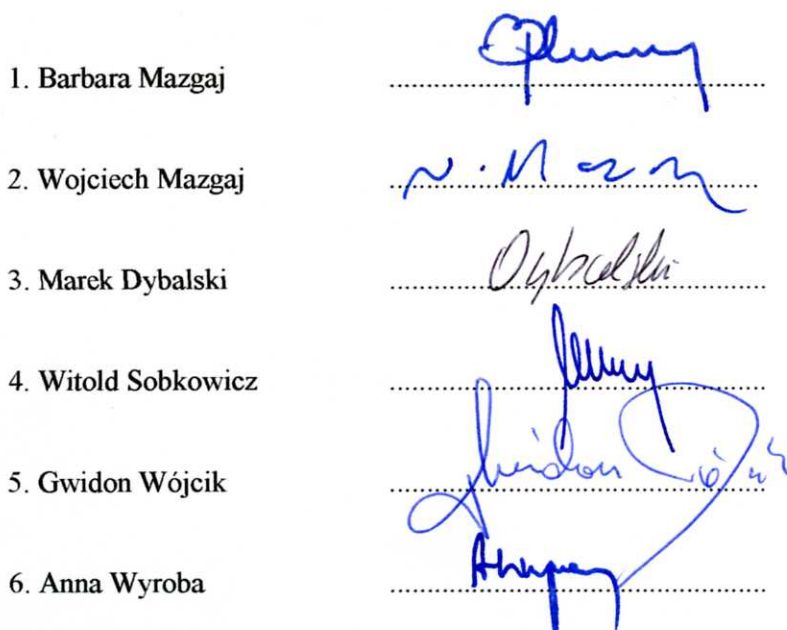 1. Barbara Mazgaj ..........
2. Wojciech Mazgaj ..........
3. Marek Dybalski .......... Dybalski
4. Witold Sobkowicz ..........
5. Gwidon Wójcik .......... Gwidon
6. Anna Wyroba ..........